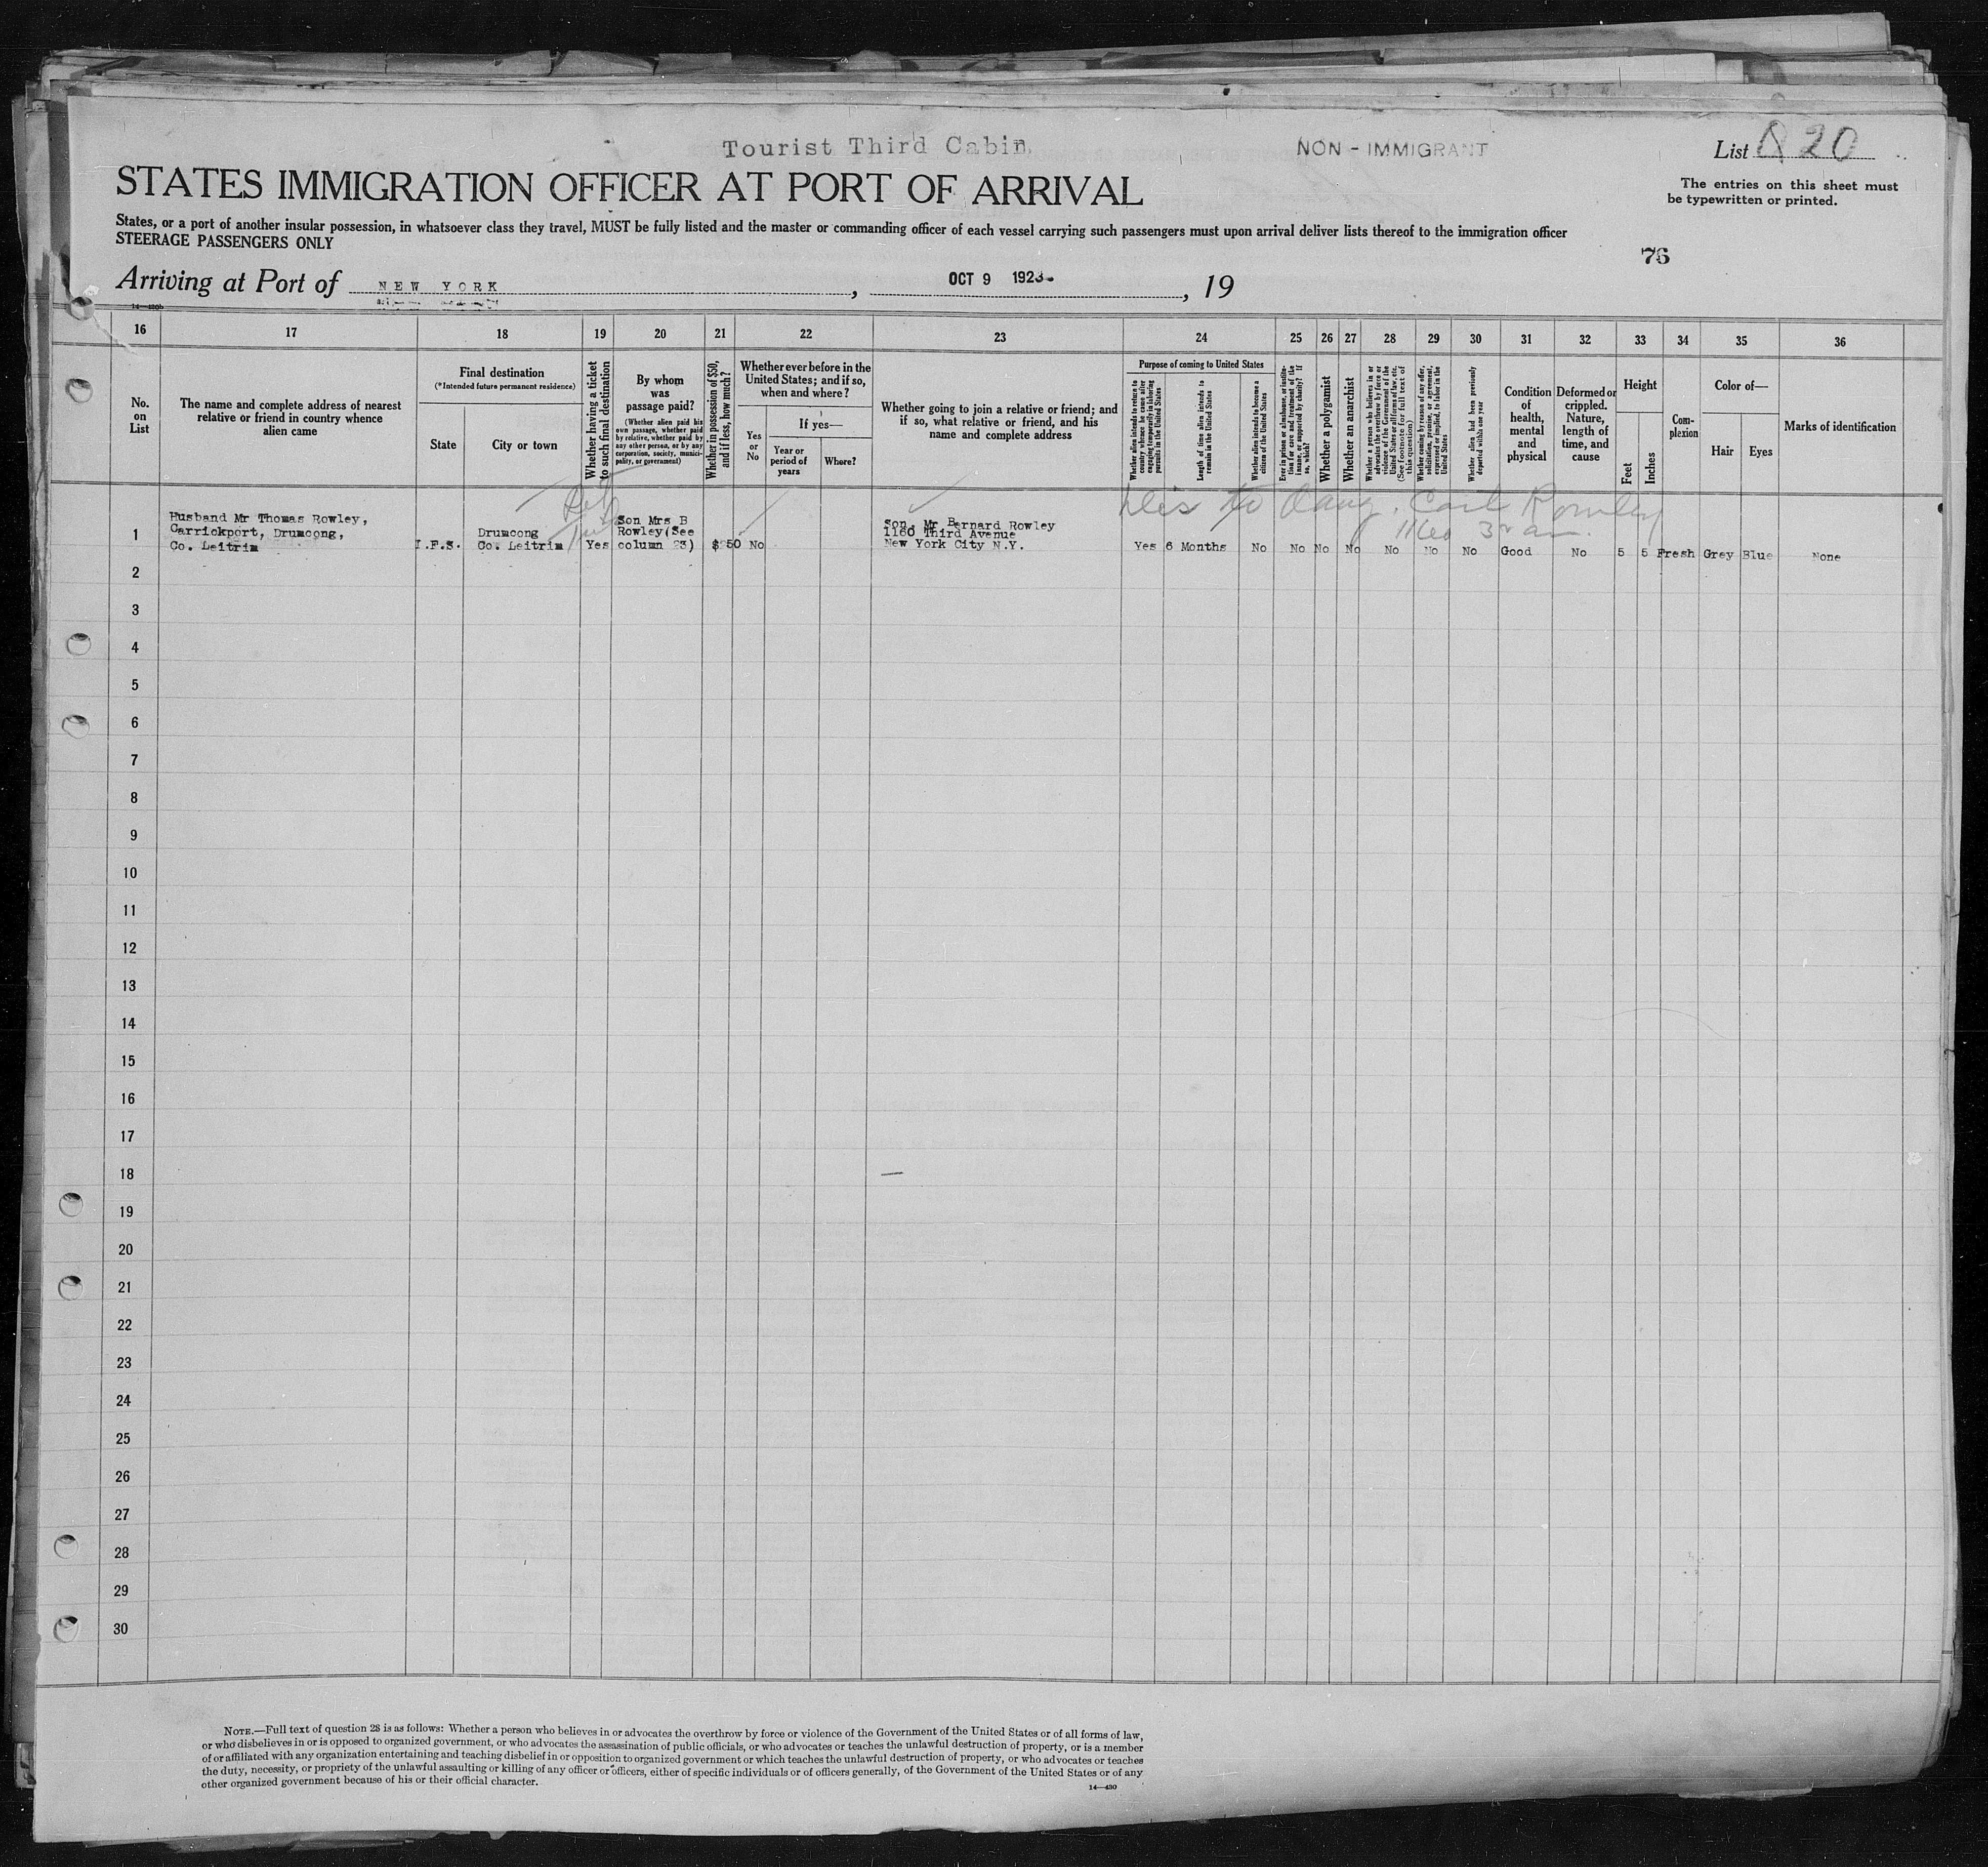 Tourist Third Cabin
NON - IMMIGRANT
List 20
STATES IMMIGRATION OFFICER AT PORT OF ARRIVAL
The entries on this sheet must
be typewritten or printed.
States, or a port of another insular possession, in whatsoever class they travel, MUST be fully listed and the master or commanding officer of each vessel carrying such passengers must upon arrival deliver lists thereof to the immigration officer
STEERAGE PASSENGERS ONLY
76
Arriving at Port of NEW YORK, OCT 9, 19
14—430b
16 17 18 19 20 21 22 23 24 25 26 27 28 29 30 31 32 33 34 35 36
No.
on
List
The name and complete address of nearest
relative or friend in country whence
alien came
Final destination
(*Intended future permanent residence)
State
City or town
Whether having a ticket
to such final destination
By whom
was
passage paid?
(Whether alien paid his
own passage, whether paid
by relative, whether paid by
any other person, or by any
corporation, society, munici-
pality, or government)
Whether in possession of $50,
and if less, how much?
Whether ever before in the
United States; and if so,
when and where?
Yes
or
No
If yes—
Year or
period of
years
Where?
Whether going to join a relative or friend; and
if so, what relative or friend, and his
name and complete address
Purpose of coming to United States
Whether alien intends to return to
country whence he came after
engaging temporarily in laboring
pursuits in the United States
Length of time alien intends to
remain in the United States
Whether alien intends to become a
citizen of the United States
Ever in prison or almshouse, or institu-
tion for care and treatment of the
insane, or supported by charity? If
so, which?
Whether a polygamist
Whether an anarchist
Whether a person who believes in or
advocates the overthrow by force or
violence of the Government of the
United States or all forms of law, etc.
(See footnote for full text of
this question)
Whether coming by reason of any offer,
solicitation, promise, or agreement,
expressed or implied, to labor in the
United States
Whether alien had been previously
deported within one year
Condition
of
health,
mental
and
physical
Deformed or
crippled.
Nature,
length of
time, and
cause
Height
Feet
Inches
Com-
plexion
Color of—
Hair
Eyes
Marks of identification
to Rowley
1
Husband Mr Thomas Rowley,
Carrickport, Drumcong,
Co. Leitrim
I.F.S.
Drumcong
Co. Leitrim
Yes
Son Mrs B
Rowley(See
column 23)
$250
No
Son, Mr Bernard Rowley
1160 Third Avenue
New York City N.Y.
Yes 6 Months No No No No No No No Good No 5 5 Fresh Grey Blue None
2
3
4
5
6
7
8
9
10
11
12
13
14
15
16
17
18
19
20
21
22
23
24
25
26
27
28
29
30
NOTE.—Full text of question 28 is as follows: Whether a person who believes in or advocates the overthrow by force or violence of the Government of the United States or of all forms of law,
or who disbelieves in or is opposed to organized government, or who advocates the assassination of public officials, or who advocates or teaches the unlawful destruction of property, or is a member
of or affiliated with any organization entertaining and teaching disbelief in or opposition to organized government or which teaches the unlawful destruction of property, or who advocates or teaches
the duty, necessity, or propriety of the unlawful assaulting or killing of any officer or officers, either of specific individuals or of officers generally, of the Government of the United States or of any
other organized government because of his or their official character.
14—430